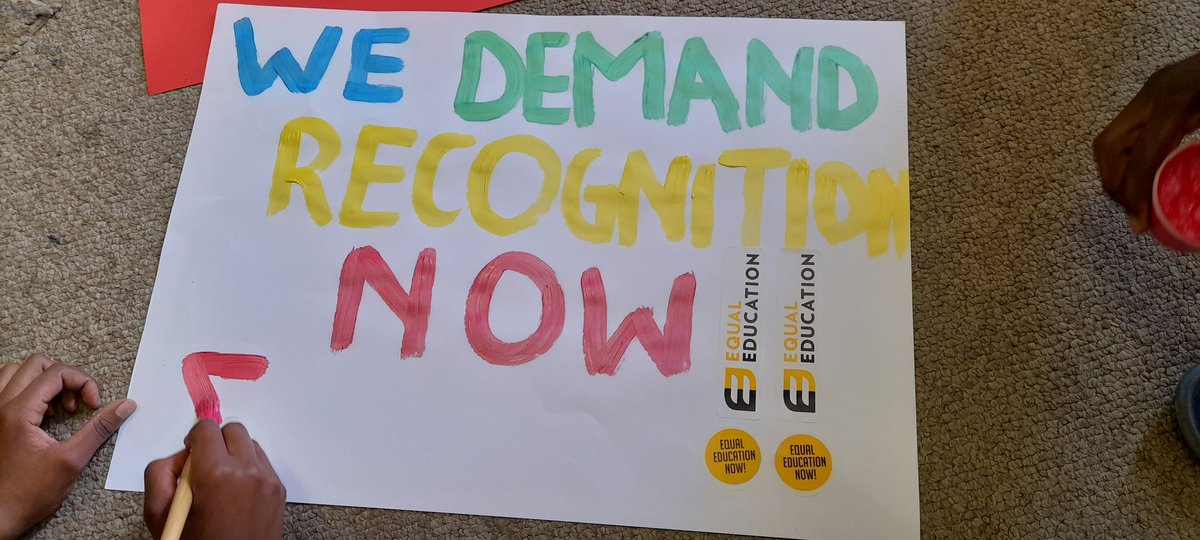 WE DEMAND
RECOGNITION
NOW
EQUAL
EDUCATION
EQUAL
EDUCATION
EQUAL
EDUCATION
NOW!
EQUAL
EDUCATION
NOW!